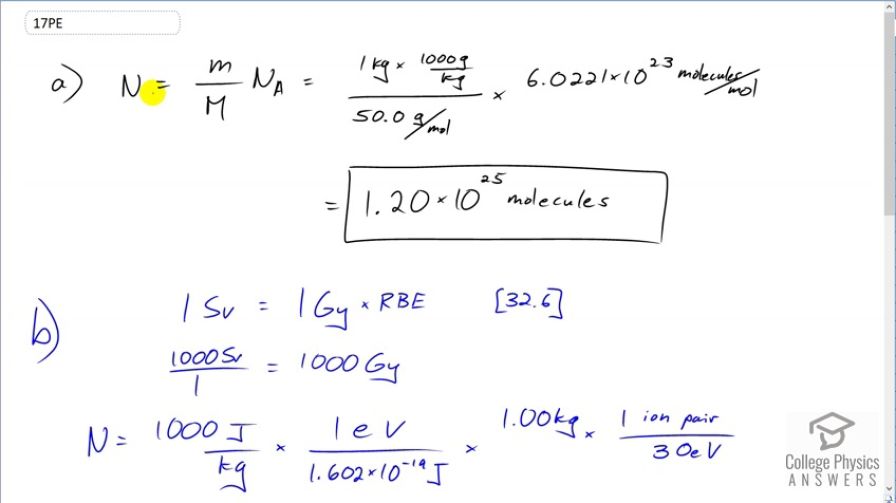 17PE
a) N = m/M N_A = (1 kg × 1000g/kg)/(50.0 g/mol) × 6.0221×10^23 molecules/mol
= 1.20×10^25 molecules
b) 1 Sv = 1 Gy × RBE [32.6]
1000Sv/1 = 1000 Gy
N = 1000 J/kg × 1 eV/1.602×10^-19 J × 1.00kg × 1 ion pair/30eV
College Physics
ANSWERS